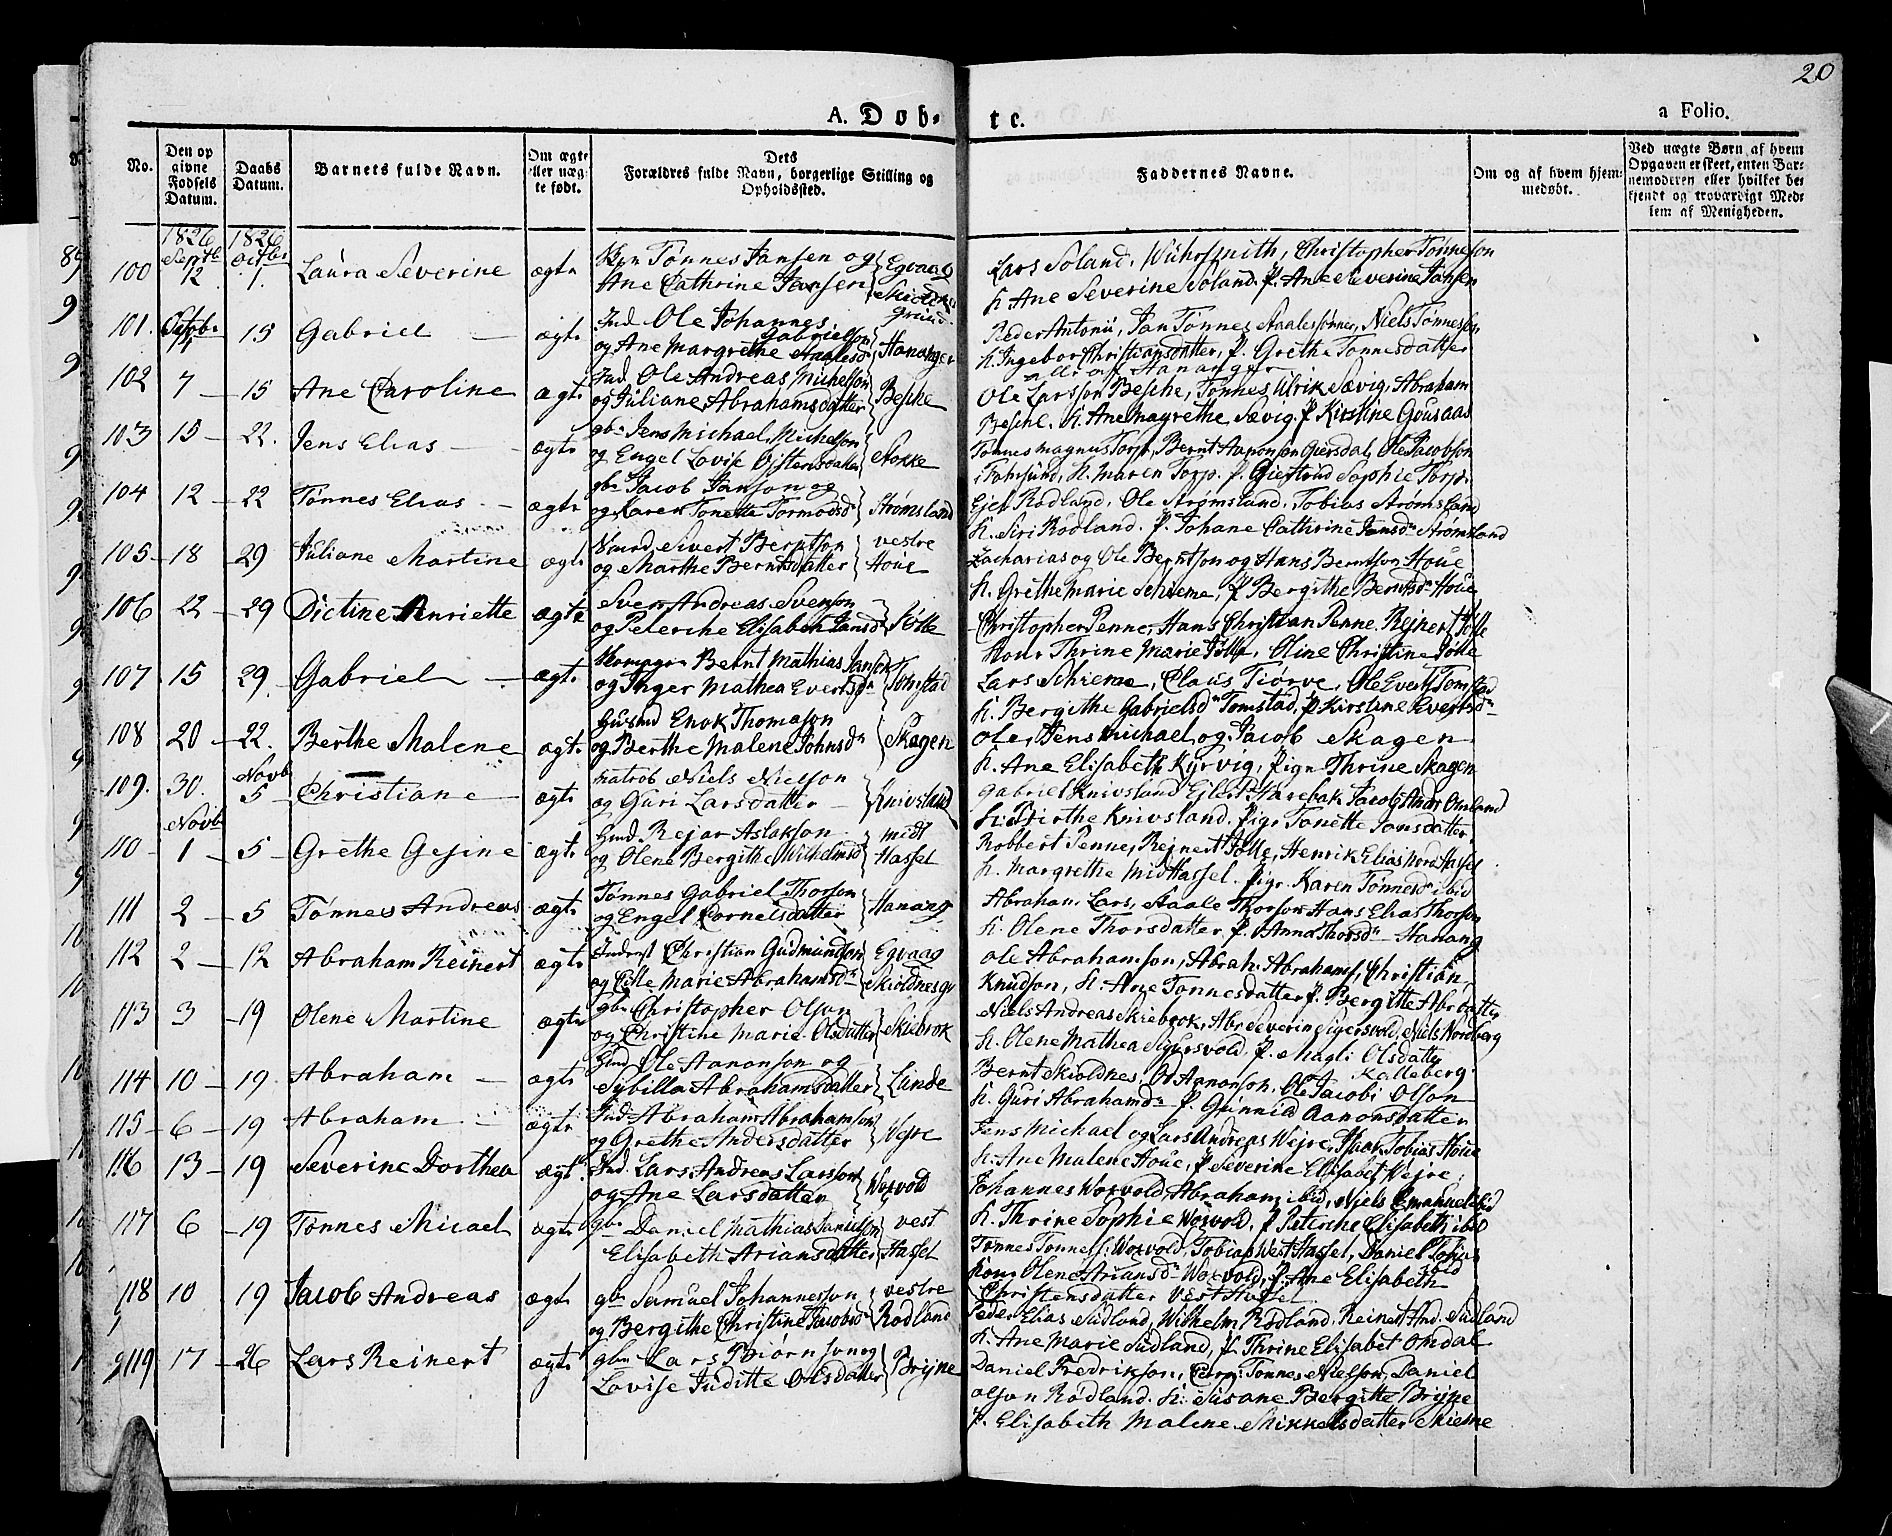 20
A. Døb- te.
a Folio.
No.
Den op givne Fødsels Datum.
Daabs Datum.
Barnets fulde Navn.
Om ægte eller uæg- te født.
Dets Forældres fulde Navn, borgerlige Stilling og Opholdssted.
Faddernes Navne.
Om og af hvem hjem- medøbt.
Ved uægte Børn af hvem Opgaven er skeet, enten Bar- nemoderen eller hvilket be- kjendt og troværdigt Med- lem af Menigheden.
1826 1826
100 Septbr 12 Octbr 1. Laura Severine ægte Tønnes Jansen og Ane Cathrine Jansen Egvaag
Lars Soland, Christopher Tønneson
K. Ane Severine Soland. P. Ane Severine Jansen
101. Octobr 15 Gabriel ægte Ind. Ole Johannes Gabrielson og Ane Margrethe Aalesd. Hananger
Peder Antonii, Jan Tønnes Aalesønner, Niels Tønnesson
K. Ingebor Christiansdatter, P. Grethe Tønnesdatter
alle af Hananger
102 7 — 15 Ane Caroline ægte Ind. Ole Andreas Michelson og Juliane Abrahamsdatter Beshe
Ole Larsson Beshe, Tønnes Ulrik Sævig, Abraham
Beshe. K. Ane Magrethe Sævig. P. Kirstine Gousaas
103 15 — 22. Jens Elias ægte gbr. Jens Michael Michelson og Engel Lovise Østensdatter Stokke
Tønnes Magnus Torp, Bernt Aanonson Giersdal, Ole Jacobson
i Farsund, K. Maren Torp. P. Giertrud Sophie Torp.
104 12 — 22 Tønnes Elias ægte gbr. Jacob Janson og og Karen Tonette Tormodsd. Strømsland
Ejel Rødland, Ole Strømsland, Tobias Strømsland
K. Siri Rødland. P. Johane Cathrine Jansd. Strømsland
105 18 — 29 Juliane Martine ægte Sivert Berntson og Marthe Berntsdatter vestre Houe
Zacharias og Ole Berntson og Hans Berntson Houe
K. Grethe Marie Schieme, P. Bergithe Berntsd. Houe
106 22 — 29 Dictine Henriette ægte Sven Andreas Svenson og Peterche Elisabeth Jansd. Jølle
Christopher Penne, Hans Christian Penne. Rejnert Jølle
Kone Thrine Marie Jølle, Oline Christine Jølle
107 15 29 Gabriel ægte Bernt Mathias Janson og Inger Mathea Evertsd. Tomstad
Lars Schieme, Claus Tiørve, Ole Evert Tomstad
K. Bergithe Gabrielsd. Tomstad, P. Kirstine Evertsd.
108 20 — 22. Berthe Malene ægte Huusmd Enok Thomason og Berthe Malene Johnsd. Skagen
Ole, Jens Michael og Jacob Skagen
K. Ane Elisabeth Kyrvig, Pige Thrine Skagen
109. 30. Novb 5 Christiane ægte Niels Nielson og Guri Larsdatter Knivsland
Gabriel Knivsland Ejlert Harebak Jacob Andr Omland
K. Birthe Knivsland. Pige Tonette Jonsdatter
110 Novb 1 — 5 Grethe Gesine ægte Gmd. Rejar Aslakson og Olene Bergithe Wilhelmsd. midt Hassel
Robbert Penne, Rejnert Jølle, Henrik Elias Nord Hassel
K. Margrethe Midhassel. Pige Karen Tønnesd. ibid
111 2 — 5 Tønnes Andreas ægte Tønnes Gabriel Thorson og Engel Cornelsdatter Hanang
Abraham, Lars, Aale Thorson, Hans Elias Thorson
K. Olene Thorsdatter P. Anna Thorsd. Hanang
112 2 — 12 Abraham Reinert ægte Inderst Christian Gudmundson og Cille Marie Abrahamsd. Egvaag Skioldnesgr
Ole Abrahamson, Abrah. Abrahams, Christian,
Knudson, K. Ane Tønnesdatter P. Bergitte Abr.datter
113 3 — 19 Olene Martine ægte gbr. Christopher Olson og Christine Marie Olsdatter Skiebrok
Niels Andreas Skiebrok, Abr Severin Sigersvold, Niels Nordberg
K. Olene Mathea Sigersvold, P. Magli Olsdatter
Kalleberg.
114 10 — 19. Abraham ægte Gmd. Ole Aanonson og Sybilla Abrahamsdatter Lunde
Bernt Skioldnes, Ol Aanonson, Ole Jacobi Olson
K. Guri Abrahamd. P. Gunnild Aanonsdatter
115 6 — 19 Abraham ægte Ind. Abraham Abrahamson og Grethe Andersdatter Wejre
Jens Michael og Lars Andreas Wejre, Isaak Tobias Houe
K. Ane Malene Houe, P. Severine Elisabet Wejre
116 13 — 19 Severine Dorthea ægte Ind. Lars Andreas Larsson og Ane Larsdatter Woxvold
Johannes Woxvold, Abraham ibid, Niels Emanuel ibid
K. Thrine Sophie Woxvold, P. Peterche Elisabeth ibid
117 6 — 19 Tønnes Micael ægte gbr. Daniel Mathias Danielson Elisabeth Ariansdatter vest Hassel
Tønnes Tønness. Woxvold, Tobias West Hassel, Daniel Tobias ibid
Kone Olene Ariansd. Woxvold, P. Ane Elisabeth
Christensdatter Vesthassel
118 10 19 Jacob Andreas ægte gbr. Samuel Johannesson og Bergithe Christine Jacobsd. vestre Rødland
Peder Elias Sudland, Wilhelm Rødland, Reinert And. Sudland
K. Ane Marie Sudland, P. Thrine Elisabet Omdal
119 17 — 26 Lars Reinert ægte gbr. Lars Biørnson og Lovise Juditte Olsdatter Bryne
Daniel Fredrikson, Tønnes Nielson, Daniel
Olson Rødland. K. Susane Bergitte Bryne
P. Elisabeth Malene Mikkelsdatter Skieme